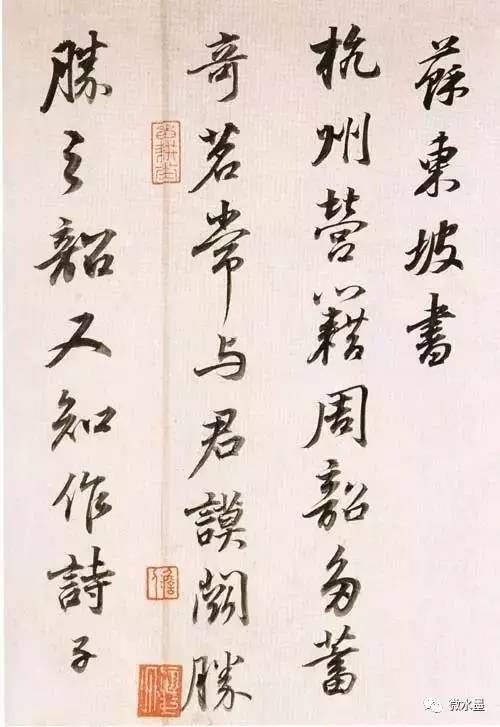 蘇東坡書
杭州營籍周韶多蓄
奇茗常与君謨鬪勝
勝之韶又知作詩子
微水墨